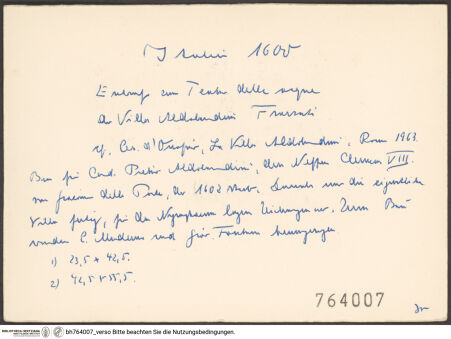 Italien 1600
Entwurf zum Teatro delle acque
der Villa Aldobrandini Frascati
cf. Ces. d'Onofrio, La Villa Aldobrandini, Rom 1963.
Bau für Card. Pietro Aldobrandini, den Neffen Clemens VIII.
von Giacomo della Porta, der 1602 starb. Damals war die eigentliche
Villa fertig, für das Nymphaeum lagen Zeichnungen vor. Zum Bau
wurden C. Maderno und Giov. Fontana herangezogen
1) 23,5 + 42,5.
2) 42,5 + 55,5.
764007
BIBLIOTHECA HERTZIANA
bh764007_verso Bitte beachten Sie die Nutzungsbedingungen.